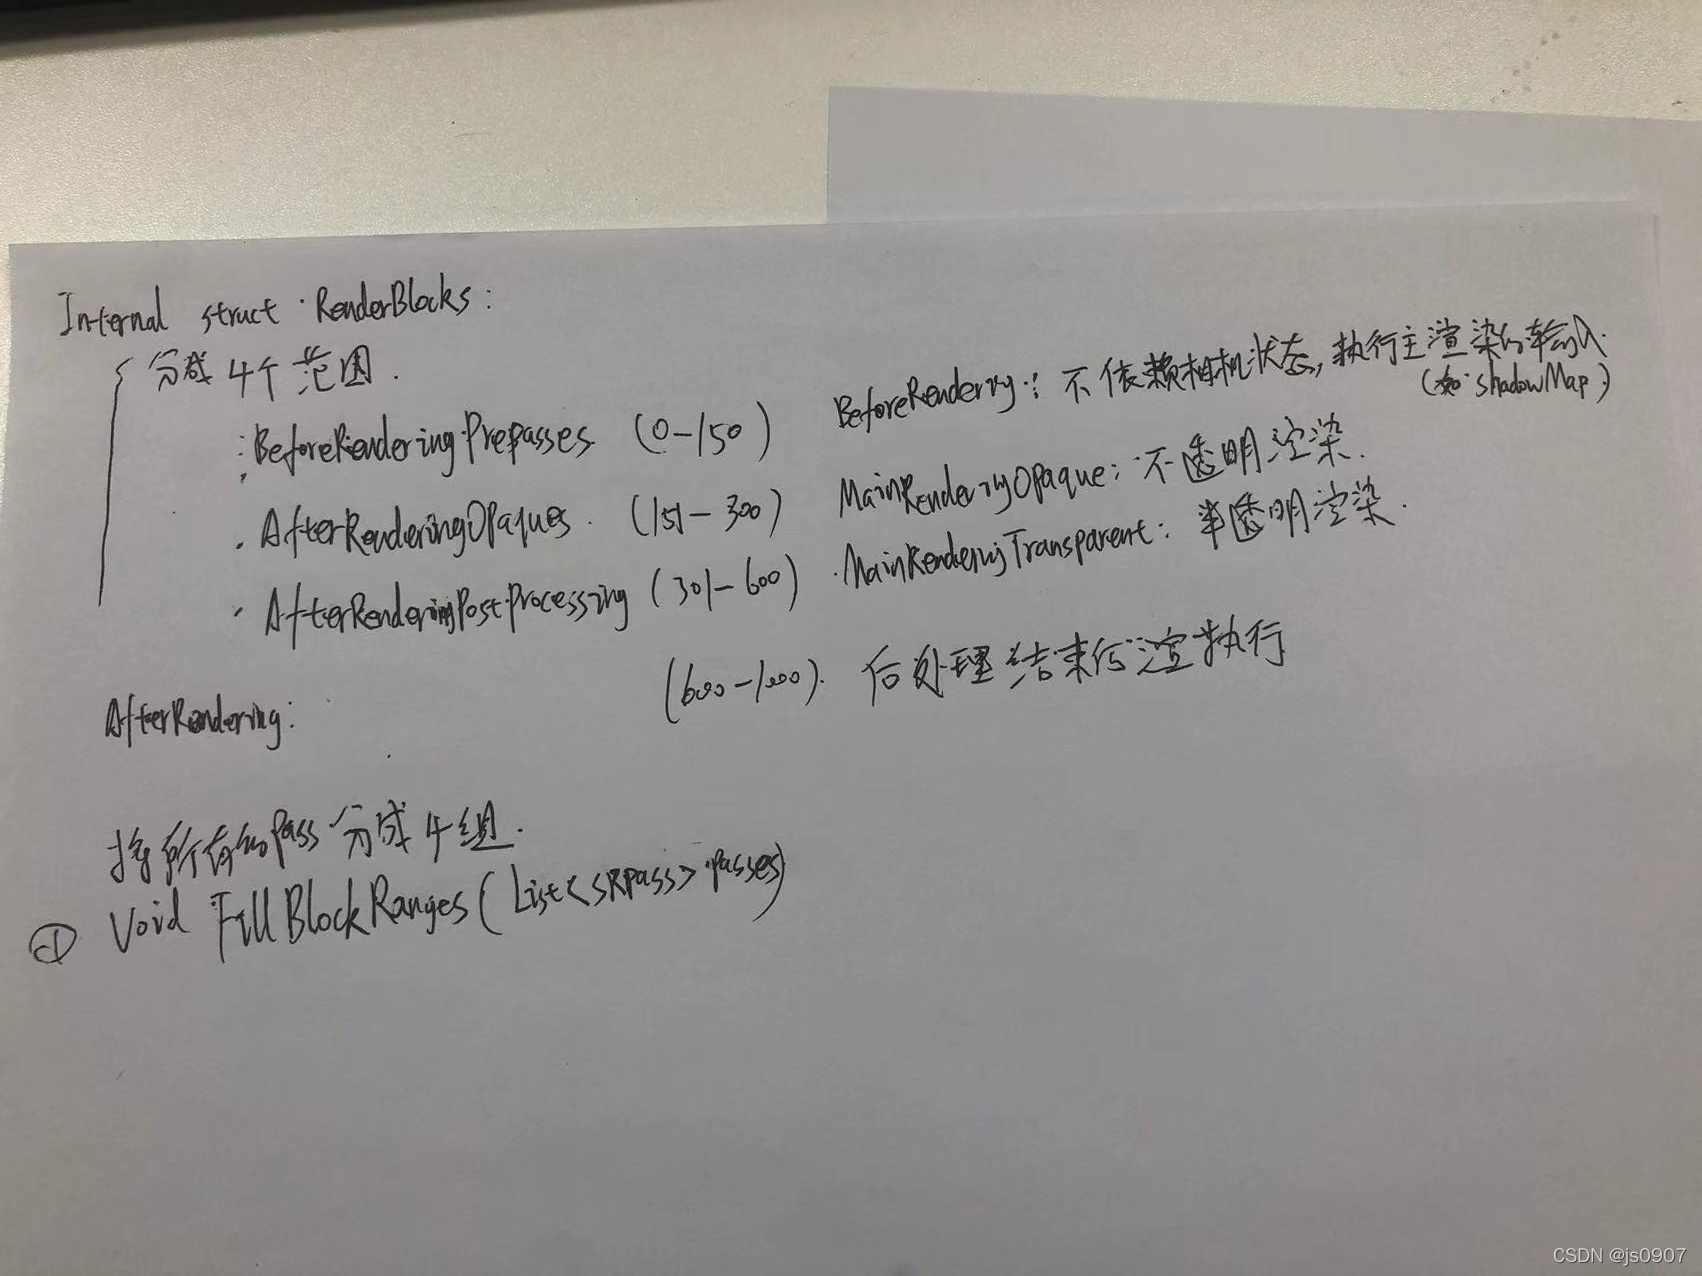 Internal struct RenderBlocks:
分成4个范围.
BeforeRenderingPrepasses (0-150) BeforeRendering: 不依赖相机状态,执行主渲染的输入.
(如:shadowMap)
AfterRenderingOpaques. (151-300) MainRenderingOpaque: 不透明渲染.
AfterRenderingPostProcessing (301-600) MainRenderingTransparent: 半透明渲染.
AfterRendering: (600-1000). 后处理结束后 执行
将所有的pass分成4组.
① Void FillBlockRanges(List<SRPass> passes)
CSDN @js0907